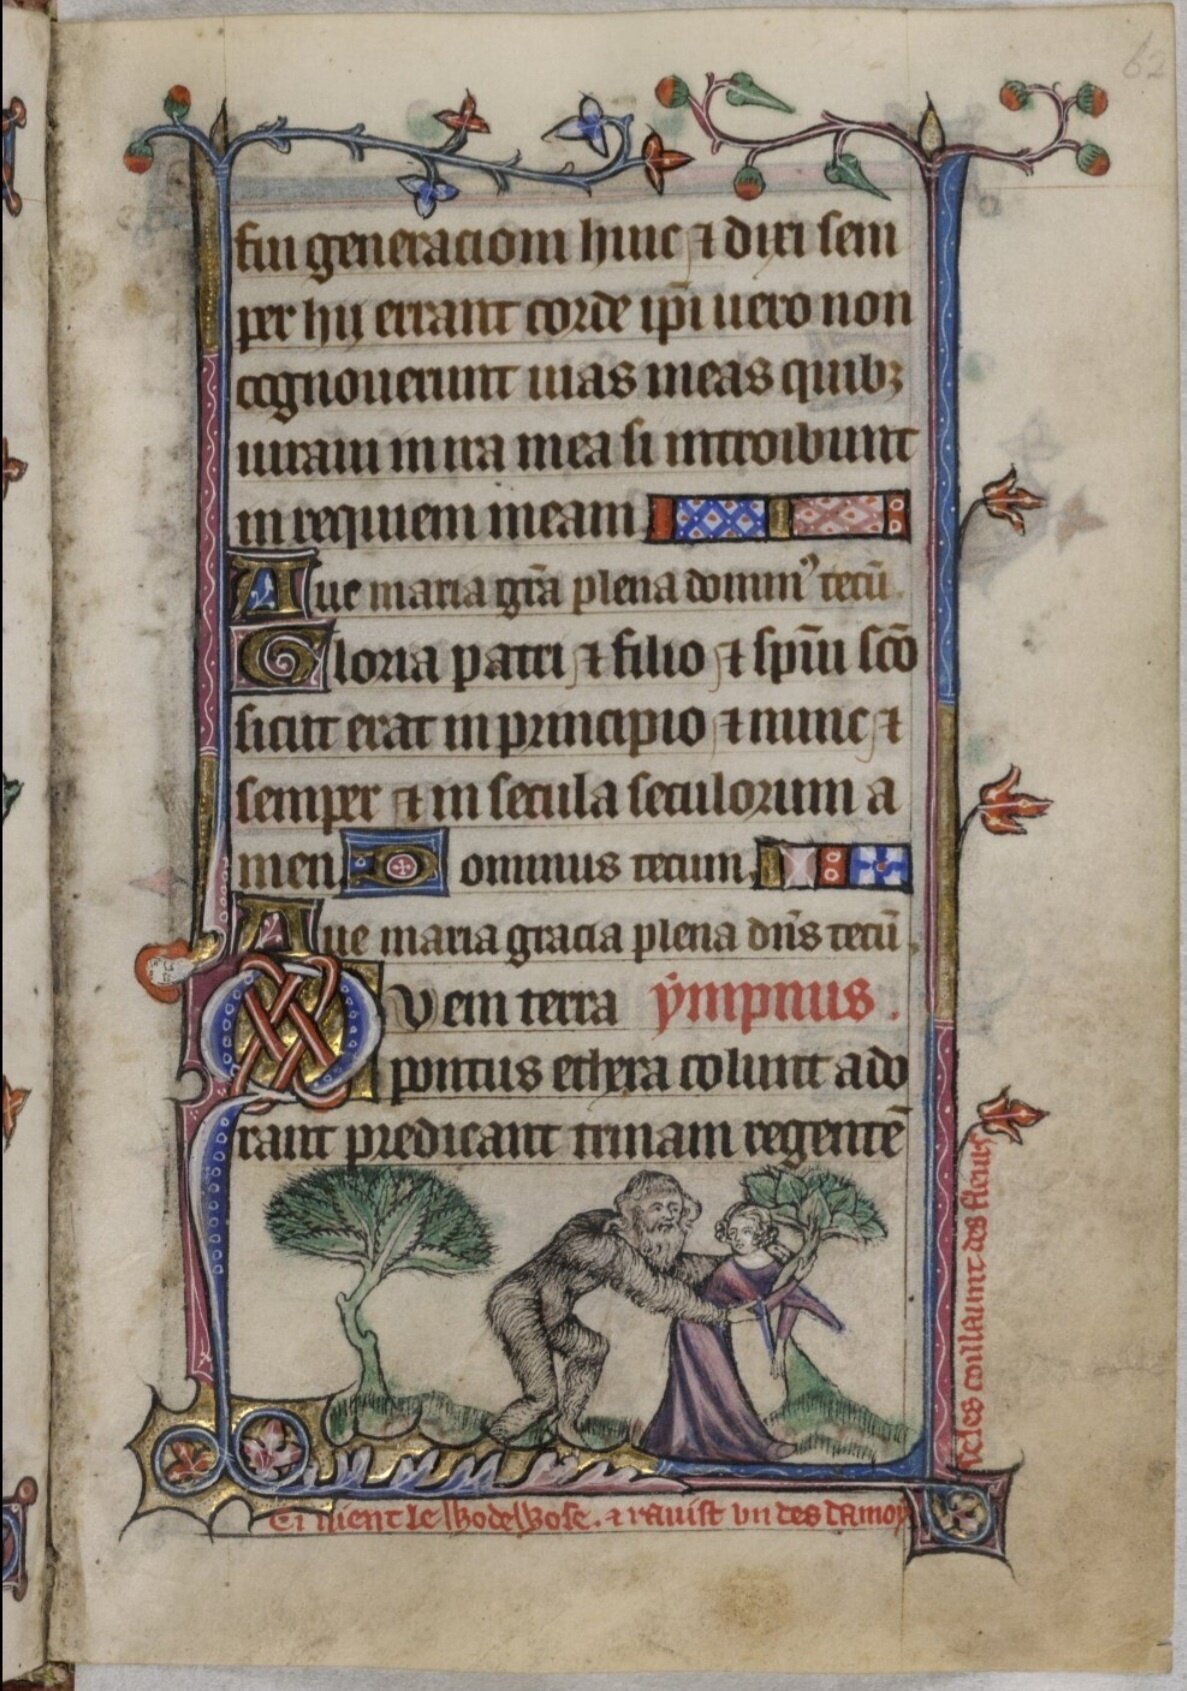 62
fui generacioni huic ⁊ dixi sem
per hij errant corde ip̄i uero non
cognouerunt uias meas quibꝫ
iuraui in ira mea si introibunt
in requiem meam
Aue maria gr̄a plena dominꝰ tecū.
Gloria patri ⁊ filio ⁊ sp̄iui sc̄o
sicut erat in principio ⁊ nunc ⁊
semper ⁊ in secula seculorum a
men Dominus tecum.
Aue maria gracia plena dn̄s tecū.
Quem terra ẏmpnus.
pontus ethera colunt ado
rant predicant trinam regentē
Ci uient le Wodewose . ⁊ rauist vn des damoy
seles coillaunt des fleurs